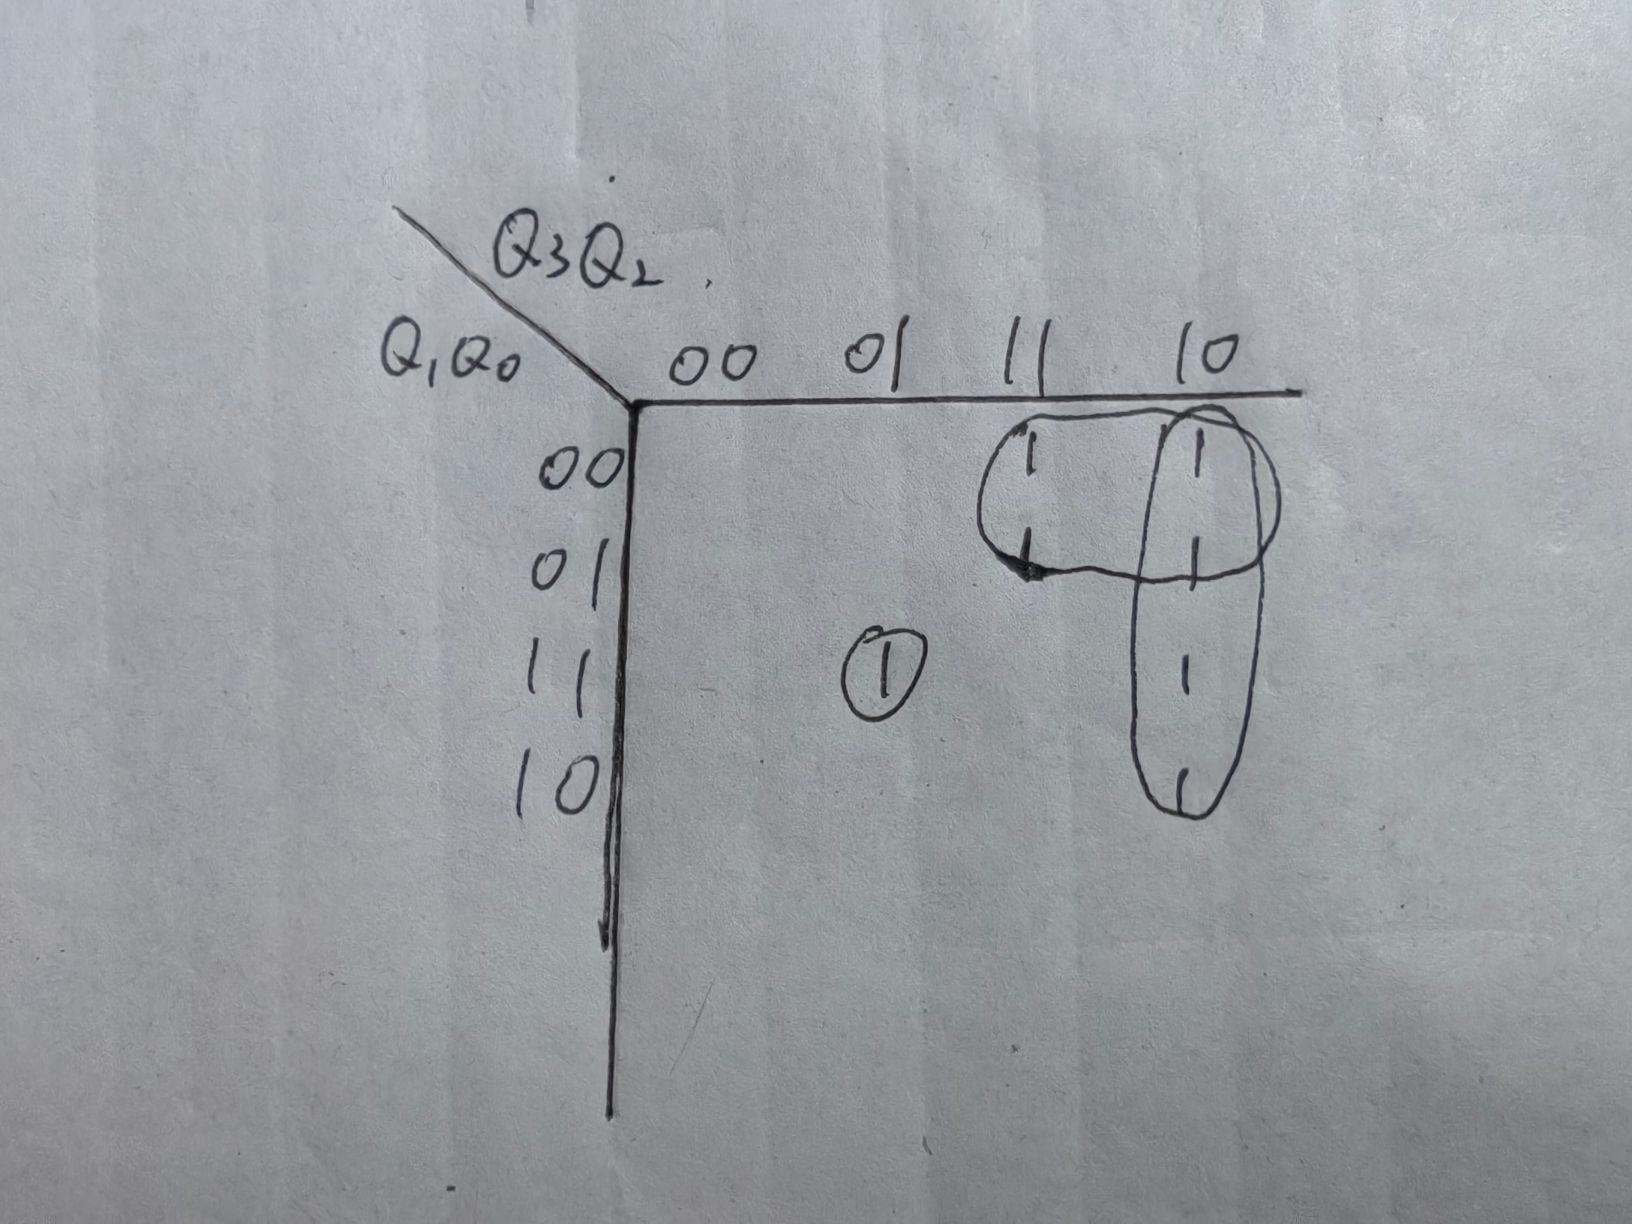 Q3Q2
Q1Q0 00 01 11 10
00 1 1
01 1 1
11 1 1
10 1